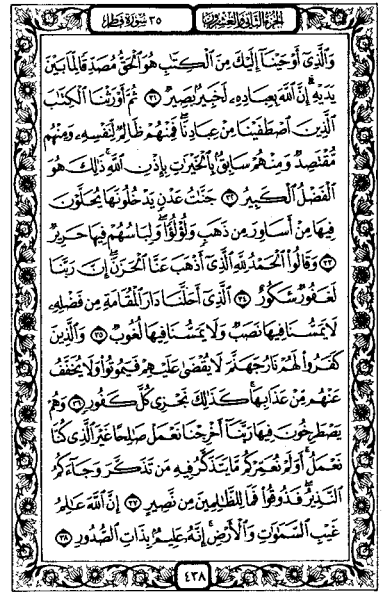 الجزء الثاني والعشرون
٣٥ سورة فاطر
وَالَّذِي أَوْحَيْنَا إِلَيْكَ مِنَ الْكِتَٰبِ هُوَ الْحَقُّ مُصَدِّقًا لِّمَا بَيْنَ
يَدَيْهِ إِنَّ اللَّهَ بِعِبَادِهِ لَخَبِيرٌ بَصِيرٌ ٣١ ثُمَّ أَوْرَثْنَا الْكِتَٰبَ
الَّذِينَ اصْطَفَيْنَا مِنْ عِبَادِنَا فَمِنْهُمْ ظَالِمٌ لِّنَفْسِهِ وَمِنْهُم
مُّقْتَصِدٌ وَمِنْهُمْ سَابِقٌ بِالْخَيْرَٰتِ بِإِذْنِ اللَّهِ ذَٰلِكَ هُوَ
الْفَضْلُ الْكَبِيرُ ٣٢ جَنَّٰتُ عَدْنٍ يَدْخُلُونَهَا يُحَلَّوْنَ
فِيهَا مِنْ أَسَاوِرَ مِن ذَهَبٍ وَلُؤْلُؤًا وَلِبَاسُهُمْ فِيهَا حَرِيرٌ
٣٣ وَقَالُوا الْحَمْدُ لِلَّهِ الَّذِي أَذْهَبَ عَنَّا الْحَزَنَ إِنَّ رَبَّنَا
لَغَفُورٌ شَكُورٌ ٣٤ الَّذِي أَحَلَّنَا دَارَ الْمُقَامَةِ مِن فَضْلِهِ
لَا يَمَسُّنَا فِيهَا نَصَبٌ وَلَا يَمَسُّنَا فِيهَا لُغُوبٌ ٣٥ وَالَّذِينَ
كَفَرُوا لَهُمْ نَارُ جَهَنَّمَ لَا يُقْضَىٰ عَلَيْهِمْ فَيَمُوتُوا وَلَا يُخَفَّفُ
عَنْهُم مِّنْ عَذَابِهَا كَذَٰلِكَ نَجْزِي كُلَّ كَفُورٍ ٣٦ وَهُمْ
يَصْطَرِخُونَ فِيهَا رَبَّنَا أَخْرِجْنَا نَعْمَلْ صَٰلِحًا غَيْرَ الَّذِي كُنَّا
نَعْمَلُ أَوَلَمْ نُعَمِّرْكُم مَّا يَتَذَكَّرُ فِيهِ مَن تَذَكَّرَ وَجَاءَكُمُ
النَّذِيرُ فَذُوقُوا فَمَا لِلظَّٰلِمِينَ مِن نَّصِيرٍ ٣٧ إِنَّ اللَّهَ عَٰلِمُ
غَيْبِ السَّمَٰوَٰتِ وَالْأَرْضِ إِنَّهُ عَلِيمٌ بِذَاتِ الصُّدُورِ ٣٨
٤٣٨